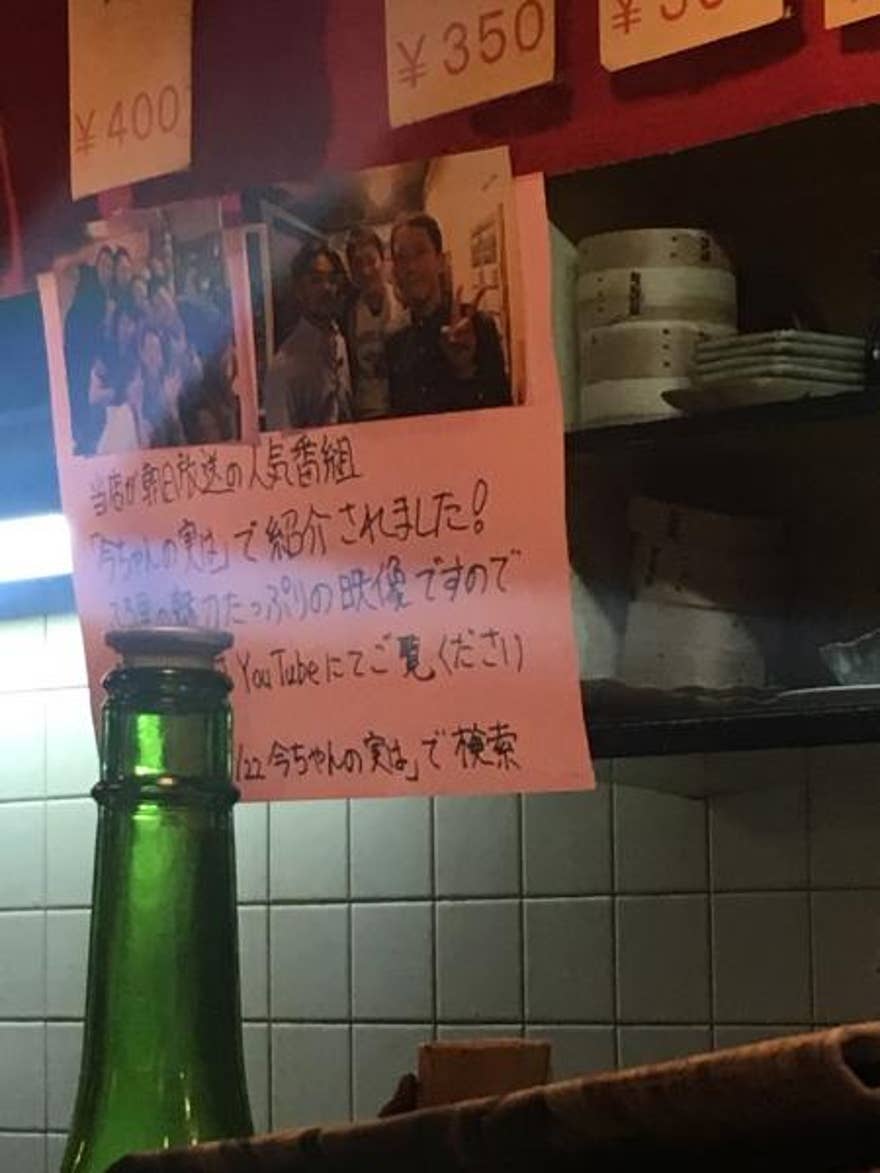 ¥400
¥350
当店が朝日放送の人気番組
「今ちゃんの実は」で紹介されました!
たっぷりの映像ですので
YouTubeにてご覧ください
/22 今ちゃんの実は」で検索